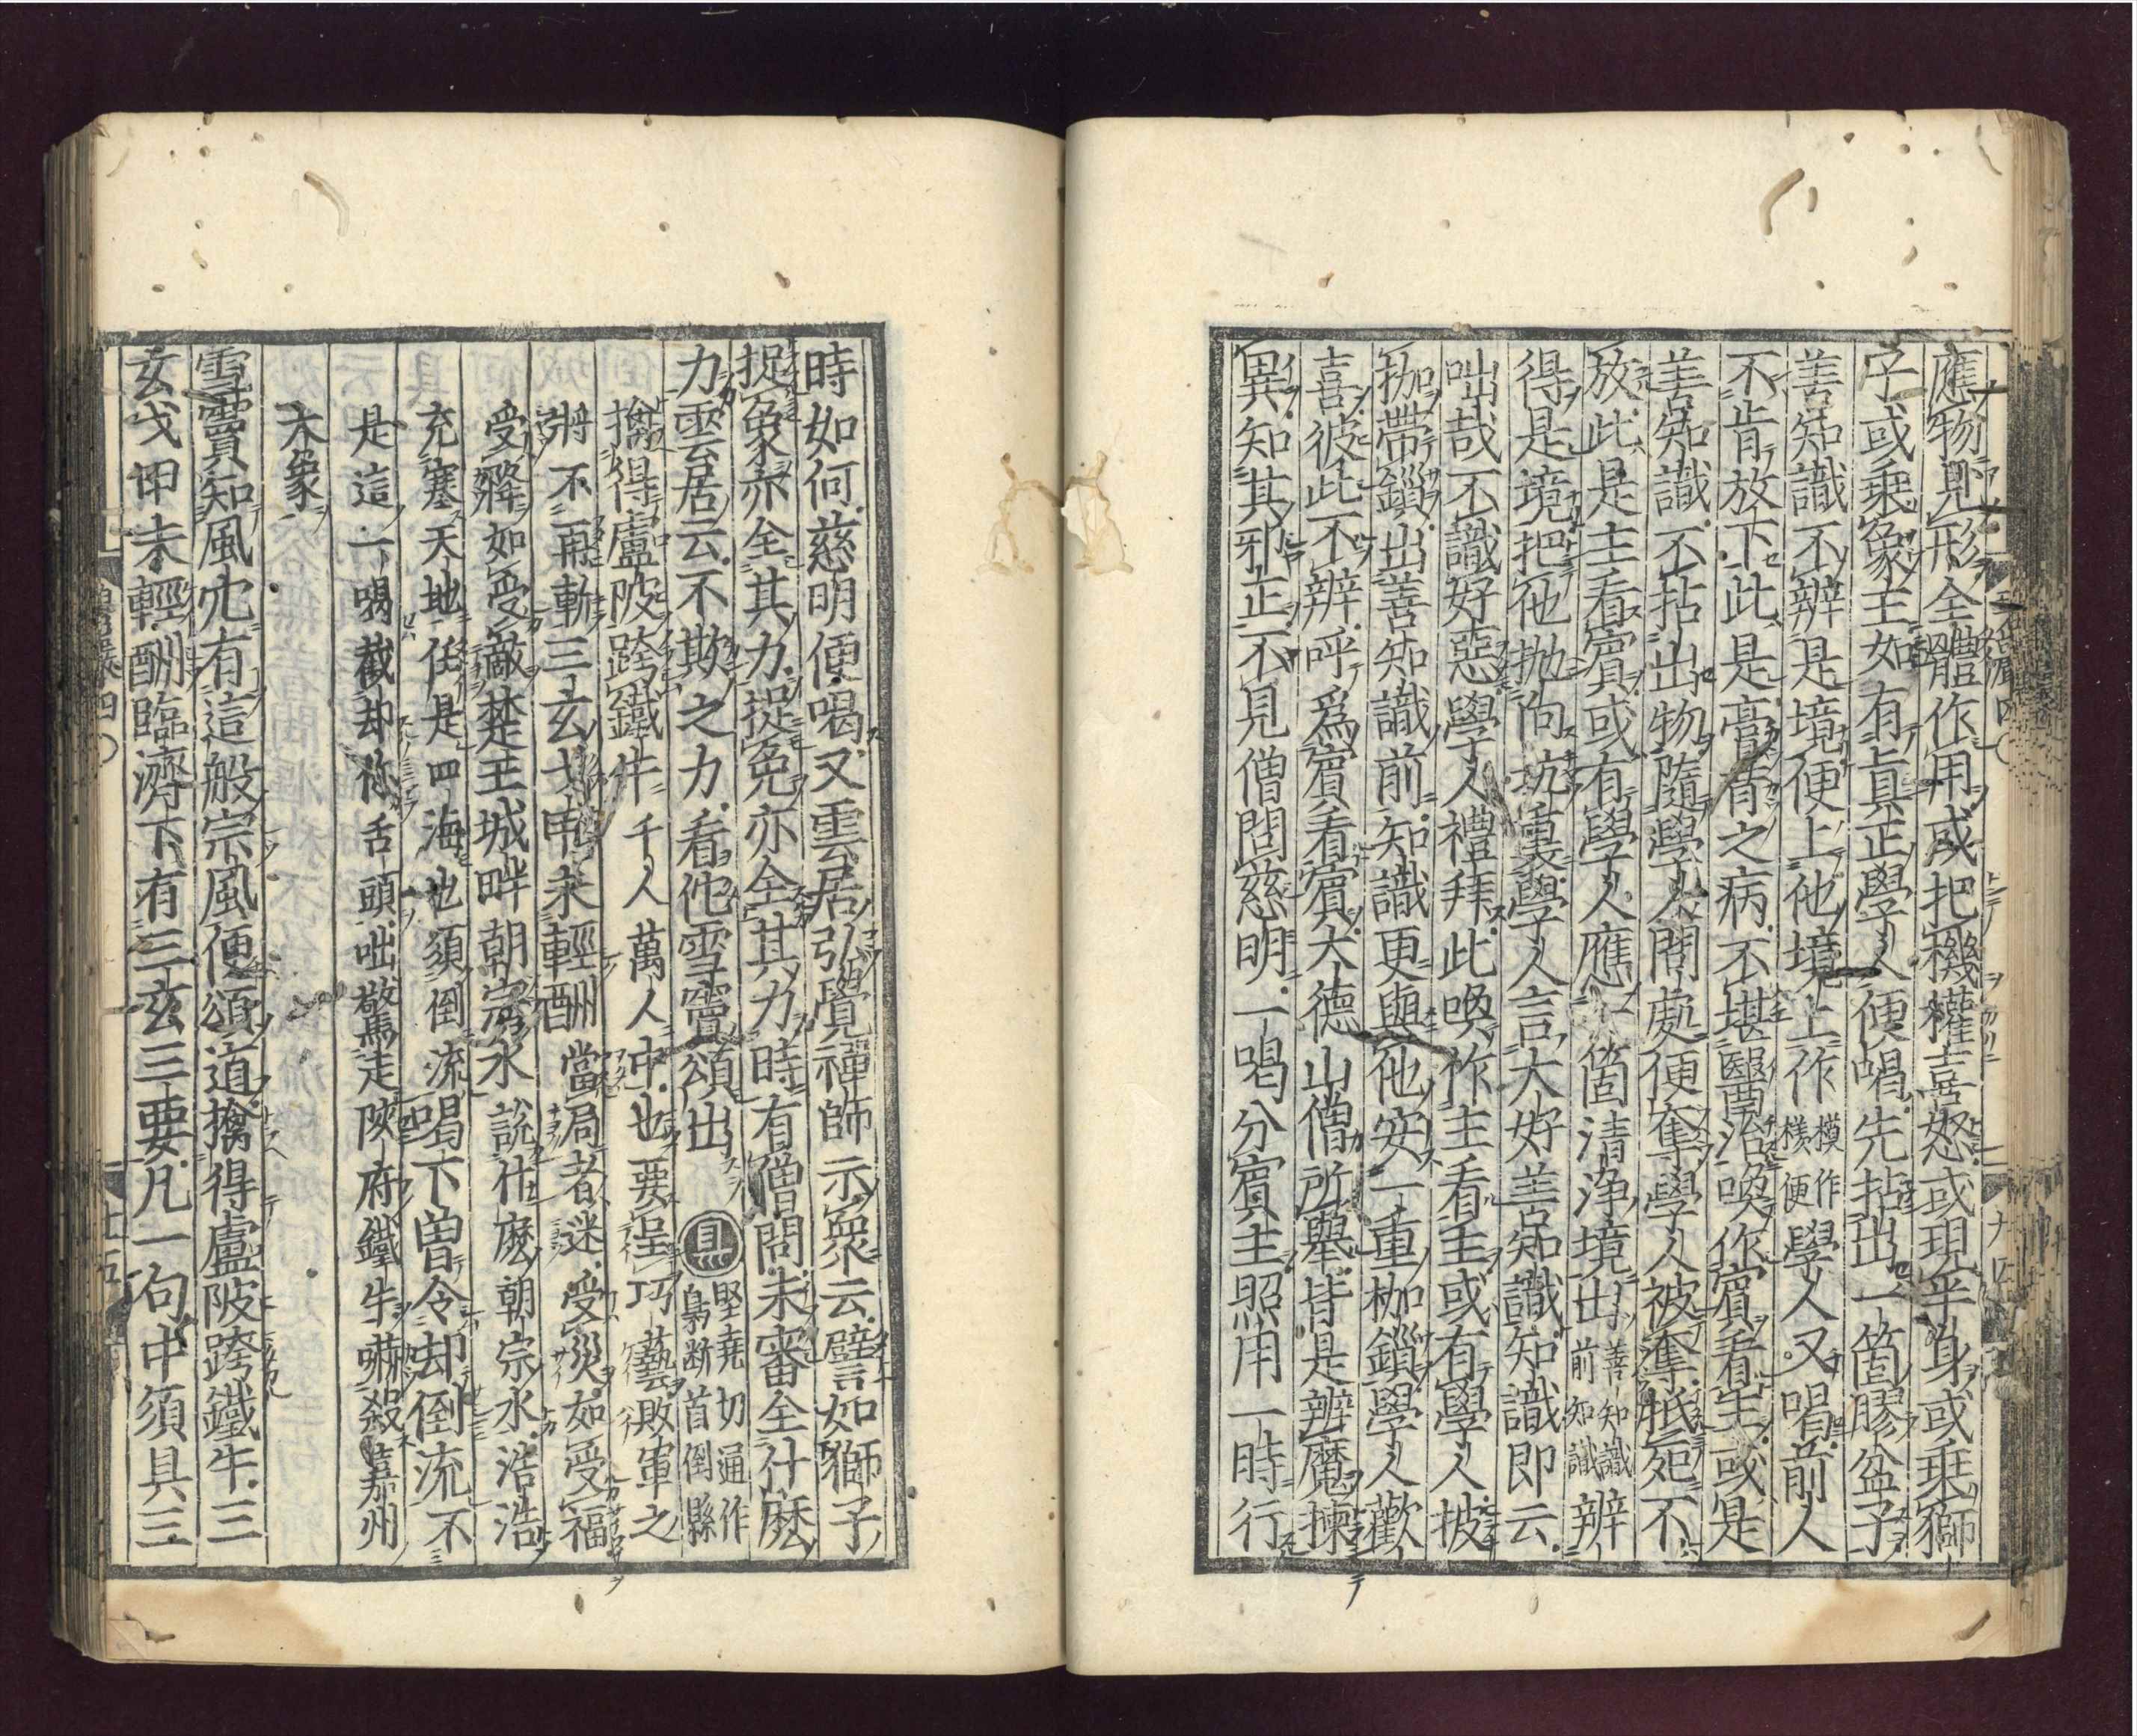 應物見形全體作用或把機權喜怒或現半身或乗獅
子或乗象王如有眞正學人便喝先拈出一箇膠盆子
善知識不辨是境便上他境上作模作樣便學人又喝前人
不肯放下此是膏肓之病不堪醫治喚作賓看主或是
善知識不拈出物隨學人問處便奪學人被奪抵死不
放此是主看賓或有學人應一箇清浄境出善知識前知識辨
得是境把他抛向坑裏學人言大好善知識知識即云
咄哉不識好惡學人禮拜此喚作主看主或有學人披
枷帶鎖出善知識前知識更與他安一重枷鎖學人歡
喜彼此不辨呼爲賓看賓大德山僧所舉皆是辨魔揀
異知其邪正不見僧問慈明一喝分賓主照用一時行
時如何慈明便喝又雲居弘覺禪師示衆云譬如獅子
捉象亦全其力捉兔亦全其力時有僧問未審全什麼
力雲居云不欺之力看他雪竇頌出
堅堯切通作
梟断首倒縣
擒得盧陂跨鐵牛千人萬人中也要呈巧藝敗軍之
將不再斬三玄戈甲未輕酬當局者迷受災如受福
受降如受敵楚王城畔朝宗水說什麼朝宗水浩浩
充塞天地任是四海也須倒流喝下曽令却倒流不
是這一喝截却你舌頭咄驚走陝府鐵牛嚇殺嘉州
大象
雪竇知風穴有這般宗風便頌道擒得盧陂跨鐵牛三
玄戈甲未輕酬臨濟下有三玄三要凡一句中須具三